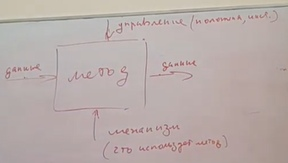 управление (политика, инст.)
данные
метод
данные
механизм
(что использует метод)